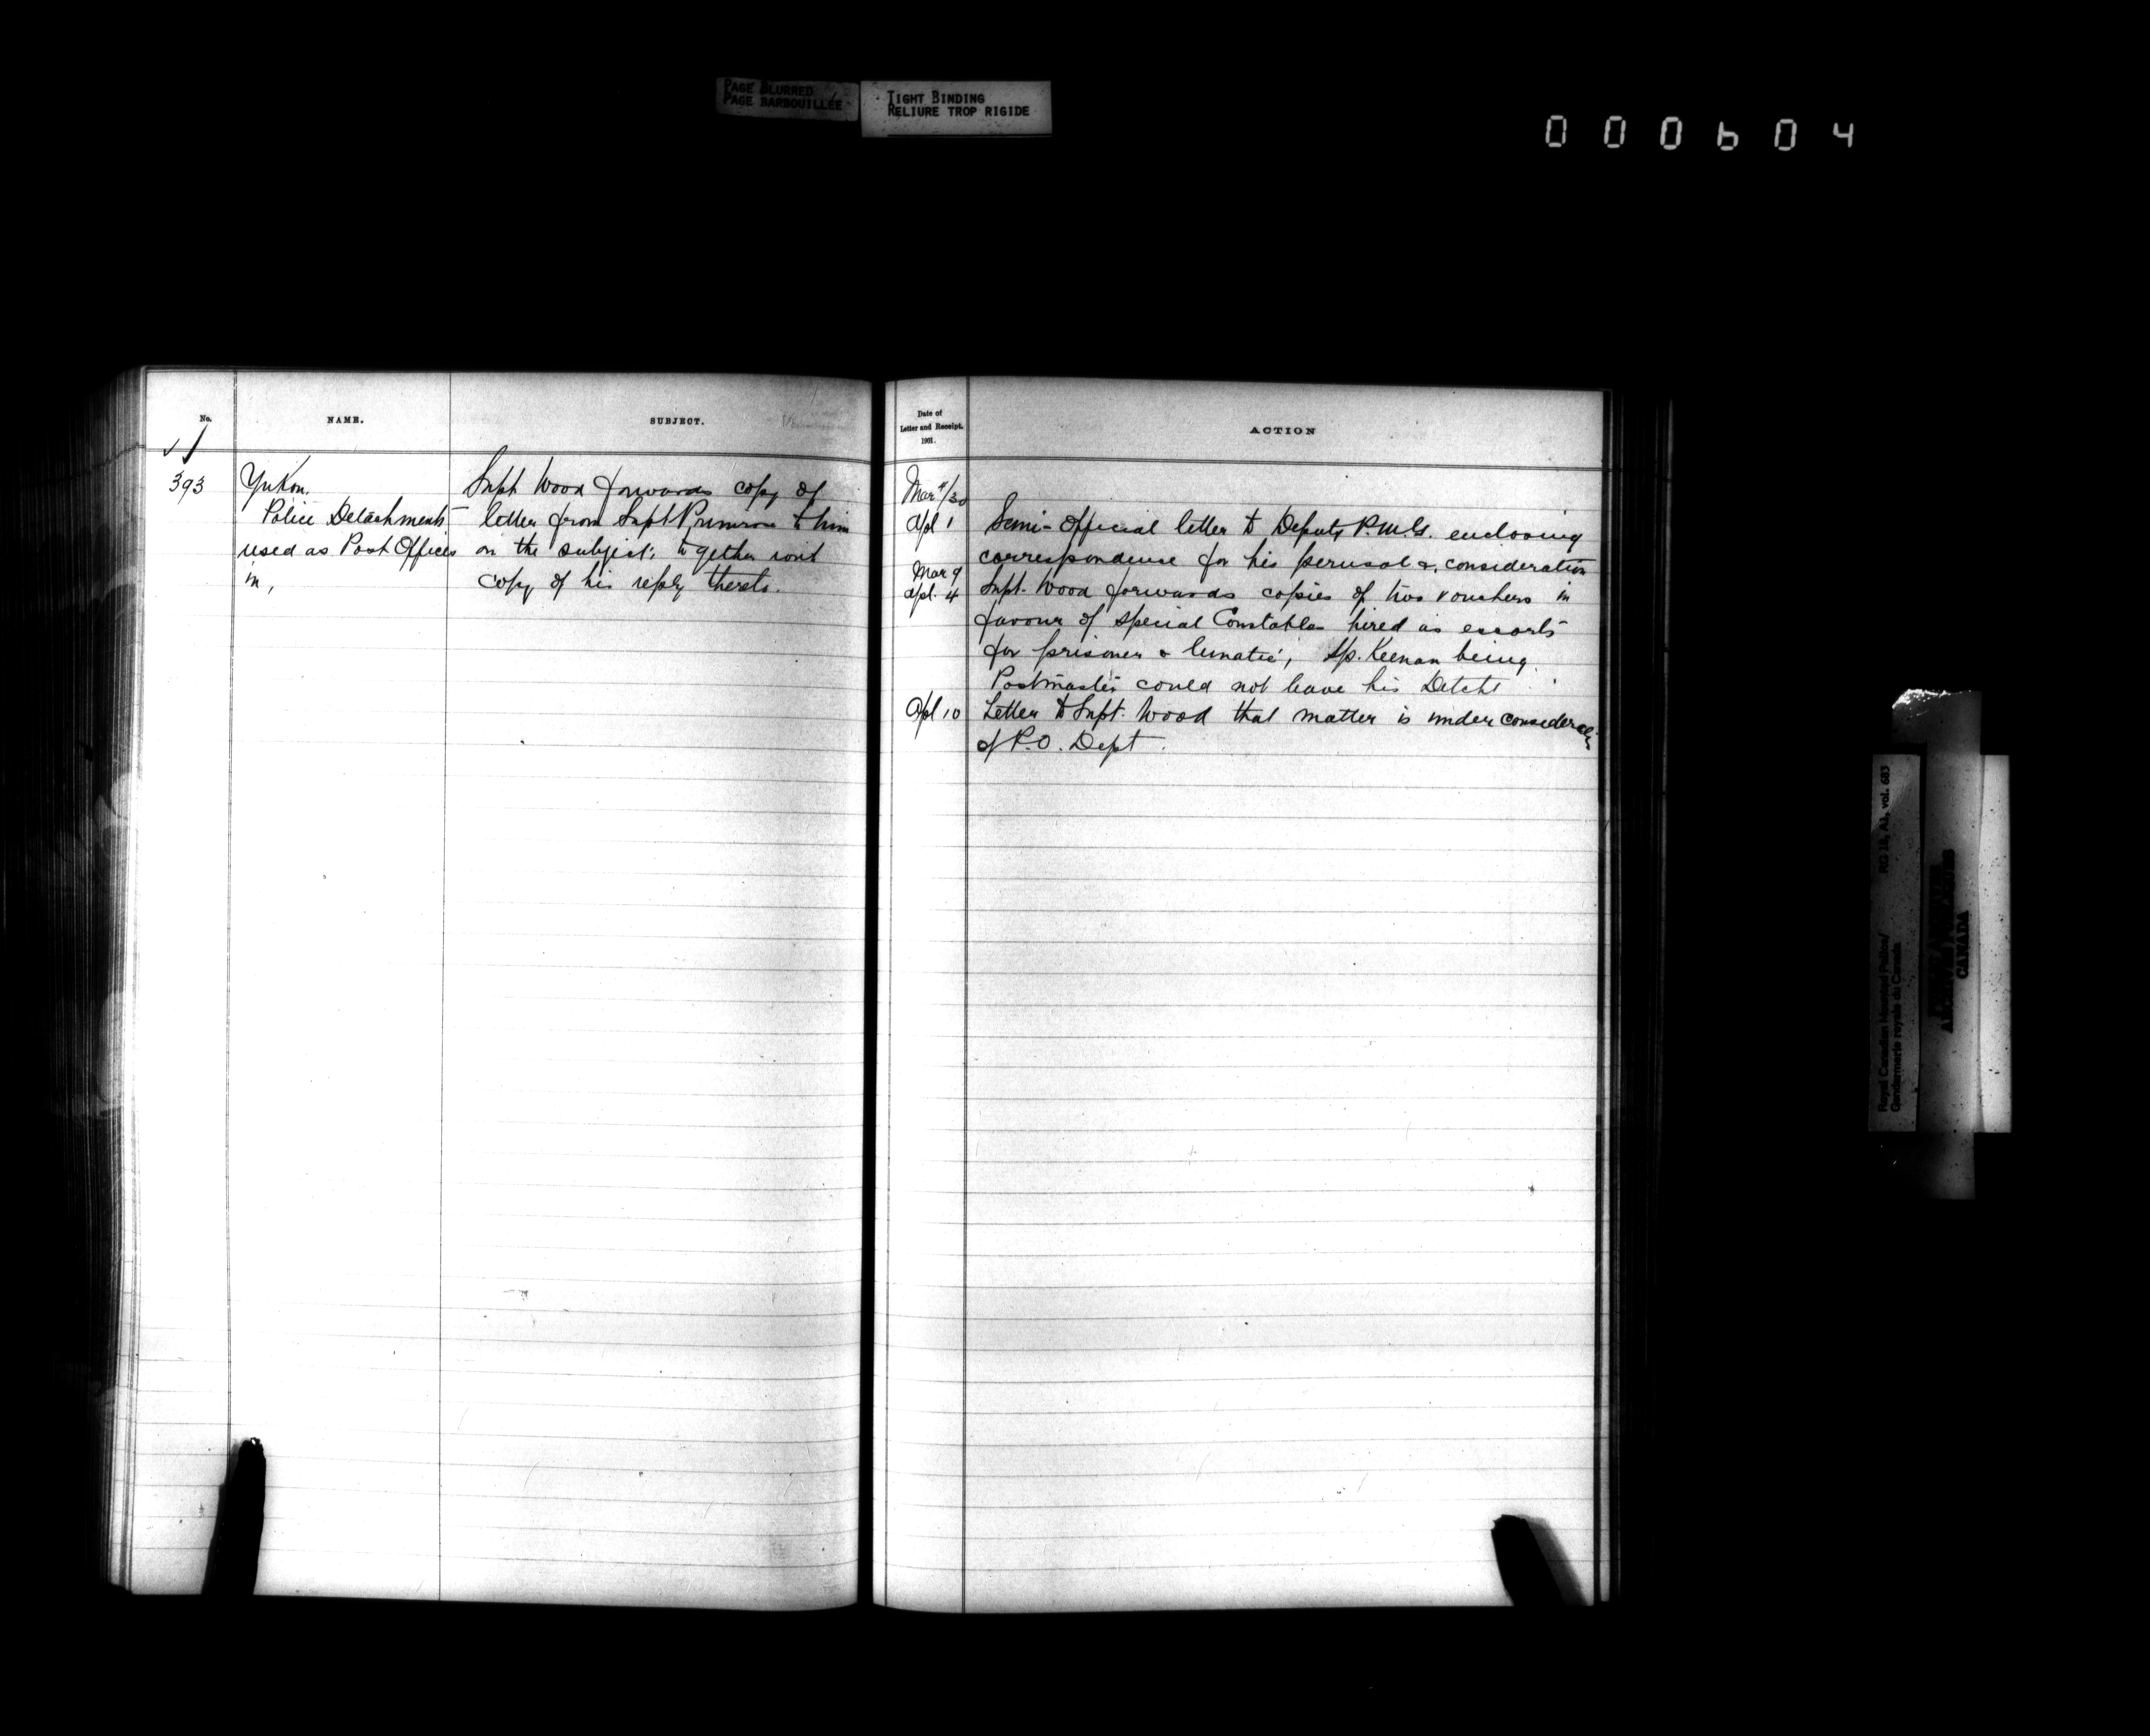 PAGE BLURRED
PAGE BARBOUILLÉE
TIGHT BINDING
RELIURE TROP RIGIDE
000604
No.
NAME.
SUBJECT.
393
Yukon.
Police Detachments
used as Post Offices
in,
Supt Wood forwards copy of
letter from Supt Primrose to him
on the subject; together with
copy of his reply thereto.
Date of
Letter and Receipt.
1901.
ACTION
Mar 4/30
Apl 1
Semi-Official letter to Deputy P.M.G. enclosing
correspondence for his perusal & consideration
Mar 9
Apl. 4
Supt. Wood forwards copies of two vouchers in
favour of special Constables hired as escorts
for prisoner & lunatic, Sp. Keenan being
Postmaster could not leave his Detcht
Apl 10
Letter to Supt. Wood that matter is under consideration
of P.O. Dept.
Royal Canadian Mounted Police/
Gendarmerie royale du Canada
RG 18, A1, vol. 683
CANADA